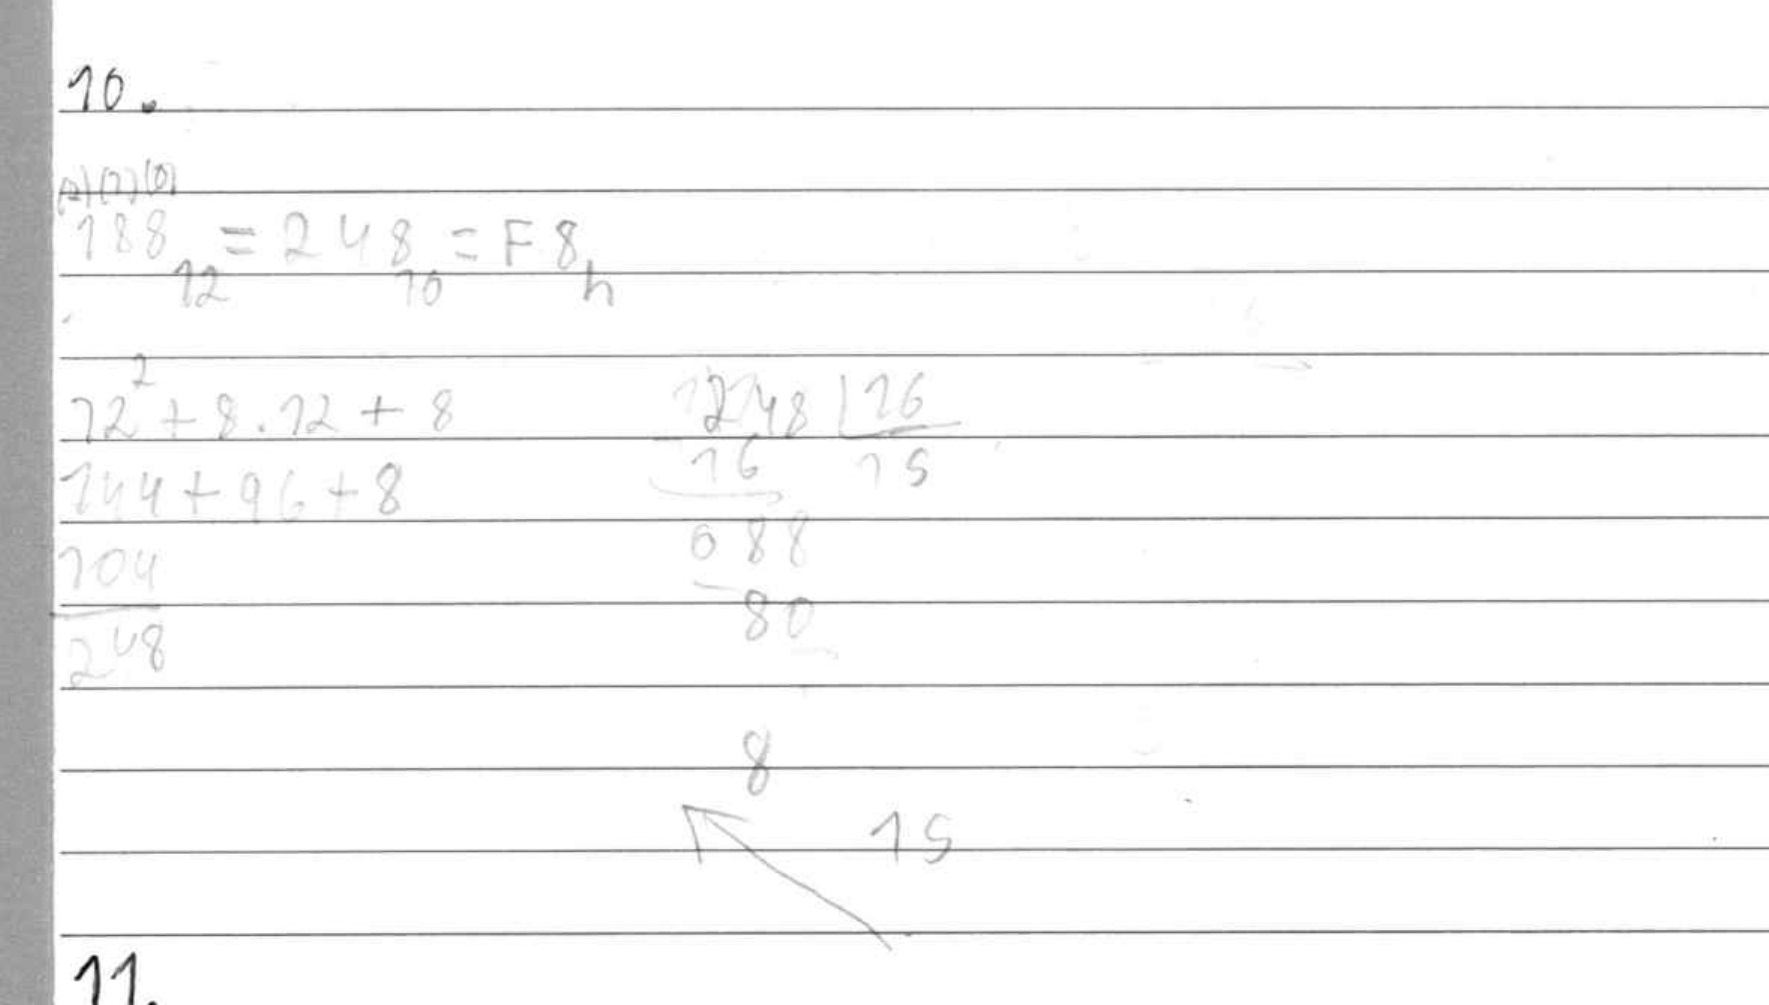 10.
(2)(1)(0)
188₁₂ = 248₁₀ = F8ₕ
12² + 8.12 + 8
144 + 96 + 8
104
248
248 | 16
16 15
088
80
8
15
11.